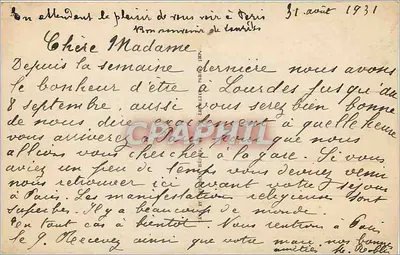 En attendant le plaisir de vous voir à Paris
Bon souvenir de Lourdes
31 août 1931
Chère Madame
Depuis la semaine dernière nous avons
le bonheur d'être à Lourdes jusqu'au
8 septembre, aussi vous serez bien bonne
de nous dire exactement à quelle heure
vous arriverez que nous
allions vous chercher à la gare. Si vous
aviez un peu de temps vous devriez venir
nous retrouver ici avant votre séjour
à Paris. Les manifestations religieuses sont
superbes. Il y a beaucoup de monde.
En tout cas à bientôt. Nous rentrons à Paris
le 9. Recevez ainsi que votre mari nos bonnes
amitiés
CPARAMA